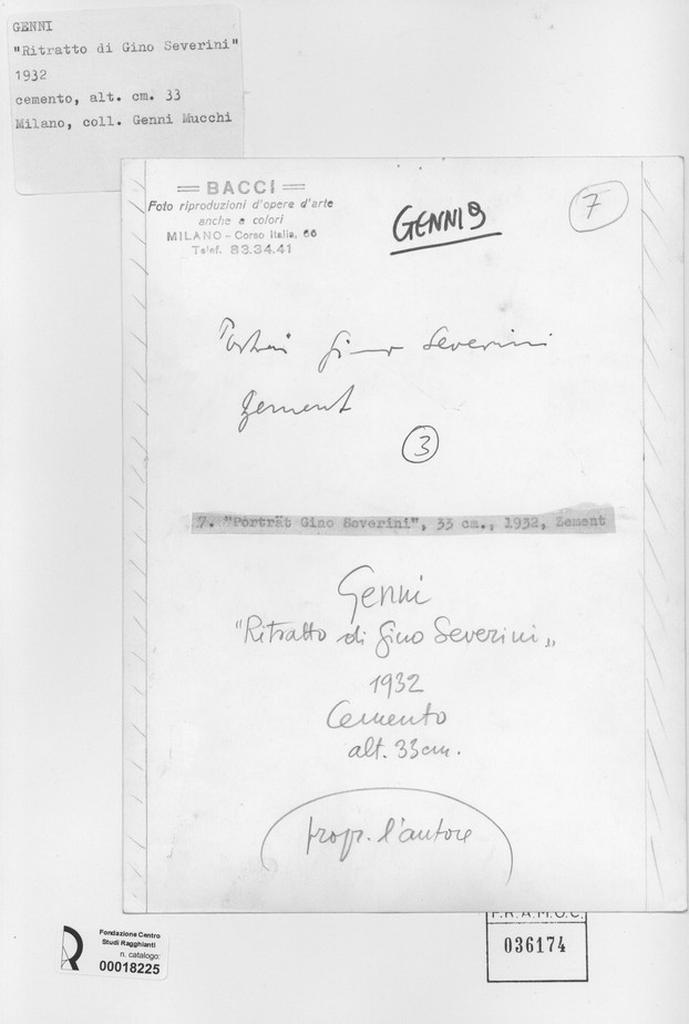 GENNI
"Ritratto di Gino Severini"
1932
cemento, alt. cm. 33
Milano, coll. Genni Mucchi
BACCI
Foto riproduzioni d'opere d'arte
anche a colori
MILANO - Corso Italia, 66
Telef. 83.34.41
GENNI 9
7
Gino Severini
Zement
3
7. "Porträt Gino Severini", 33 cm., 1932, Zement
Genni
"Ritratto di Gino Severini"
1932
Cemento
alt. 33 cm.
propr. l'autore
Fondazione Centro
Studi Ragghianti
n. catalogo:
00018225
F.R.A.M.O.C.
036174